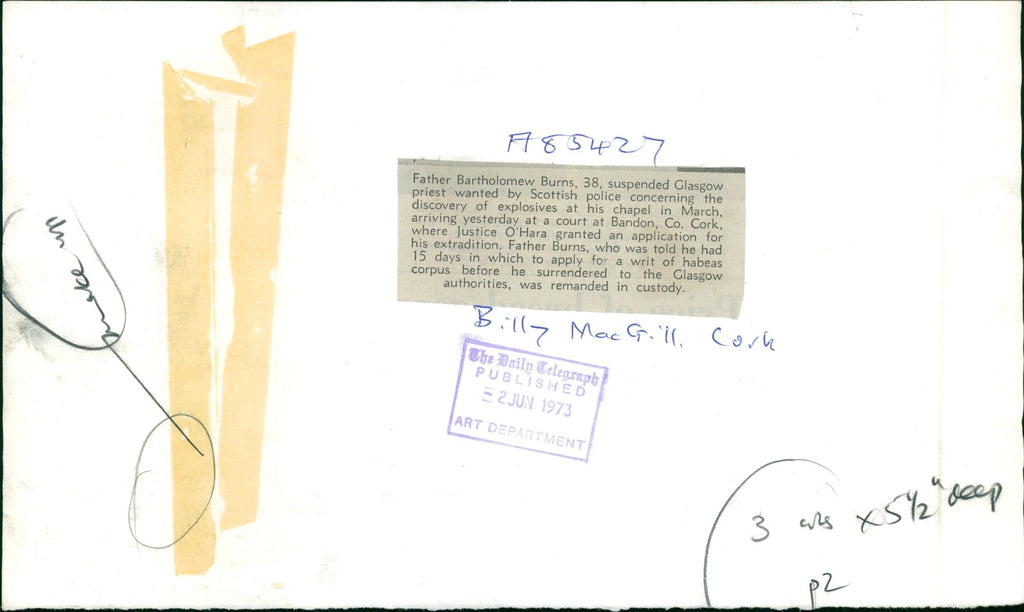 A85427
Father Bartholomew Burns, 38, suspended Glasgow
priest wanted by Scottish police concerning the
discovery of explosives at his chapel in March,
arriving yesterday at a court at Bandon, Co. Cork,
where Justice O'Hara granted an application for
his extradition. Father Burns, who was told he had
15 days in which to apply for a writ of habeas
corpus before he surrendered to the Glasgow
authorities, was remanded in custody.
Billy MacGill. Cork
The Daily Telegraph
PUBLISHED
2 JUN 1973
ART DEPARTMENT
3 cols x 5½" deep
p2